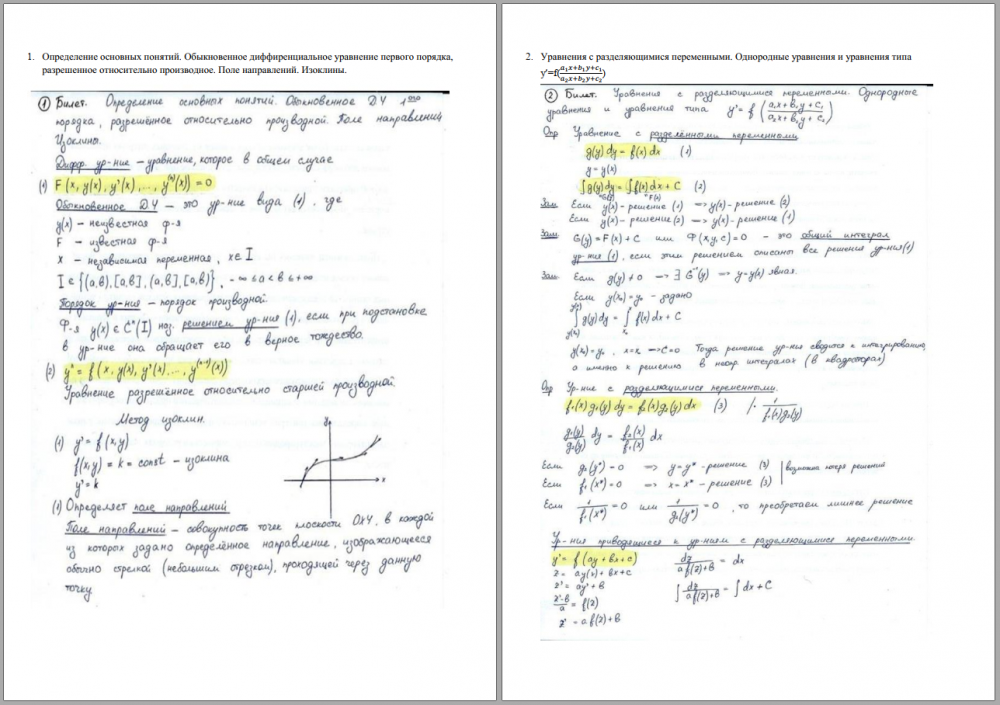 1. Определение основных понятий. Обыкновенное диффиренциальное уравнение первого порядка,
разрешенное относительно производное. Поле направлений. Изоклины.
① Билет. Определение основных понятий. Обыкновенное ДУ 1ого
порядка, разрешённое относительно производной. Поле направлений
Изоклины.
Дифф. ур-ние – уравнение, которое в общем случае
(1) F(x, y(x), y'(x), ..., y⁽ⁿ⁾(x)) = 0
Обыкновенное ДУ – это ур-ние вида (1), где
y(x) – неизвестная ф-я
F – известная ф-я
x – независимая переменная, x∈I
I ∈ {(a,b), [a,b], (a,b], [a,b)}, -∞ ≤ a < b ≤ +∞
Порядок ур-ния – порядок производной.
Ф-я y(x) ∈ Cⁿ(I) наз. решением ур-ния (1), если при подстановке
в ур-ние она обращает его в верное тождество.
(2) yⁿ = f(x, y(x), y'(x), ..., y⁽ⁿ⁻¹⁾(x))
Уравнение разрешённое относительно старшей производной.
Метод изоклин.
(1) y' = f(x,y)
f(x,y) = k = const – изоклина
y' = k
y
x
(1) Определяет поле направлений
Поле направлений – совокупность точек плоскости OXY, в каждой
из которых задано определённое направление, изображающееся
обычно стрелкой (небольшим отрезком), проходящей через данную
точку
2. Уравнения с разделяющимися переменными. Однородные уравнения и уравнения типа
y'=f(a₁x+b₁y+c₁/a₂x+b₂y+c₂)
② Билет. Уравнения с разделяющимися переменными. Однородные
уравнения и уравнения типа y' = f(a₁x+b₁y+c₁/a₂x+b₂y+c₂)
Опр Уравнение с разделёнными переменными
g(y)dy = f(x)dx (1)
y = y(x)
∫g(y)dy = ∫f(x)dx + C (2)
G(y) F(x)
Зам Если y(x) - решение (1) => y(x) - решение (2)
Если y(x) - решение (2) => y(x) - решение (1)
Зам. G(y) = F(x) + C или Ф(x,y,c) = 0 – это общий интеграл
ур-ния (1), если этим решением описаны все решения ур-ния (1)
Зам Если g(y) ≠ 0 => ∃ G⁻¹(y) => y = y(x) явная.
Если y(x₀) = y₀ - задано
∫g(y)dy = ∫f(x)dx + C
y(x₀) = y₀, x = x₀ => C = 0 Тогда решение ур-ния сводится к интегрированию,
а именно к решению в неопр. интегралах (в квадратурах)
Опр Ур-ние с разделяющимися переменными.
f₁(x)g₁(y)dy = f₂(x)g₂(y)dx (3) /· 1/f₁(x)g₂(y)
g₁(y)/g₂(y) dy = f₂(x)/f₁(x) dx
Если g₂(y*) = 0 => y = y* - решение (3) | возможна потеря решений
Если f₁(x*) = 0 => x = x* - решение (3)
Если 1/f₁(x*) = 0 или 1/g₂(y*) = 0, то приобретаем лишнее решение
Ур-ния приводящиеся к ур-ниям с разделяющимися переменными.
y' = f(ay + bx + c) dz/af(z)+b = dx
z = ay(x) + bx + c
z' = ay' + b ∫dz/af(z)+b = ∫dx + C
z'-b/a = f(z)
z' = af(z) + b